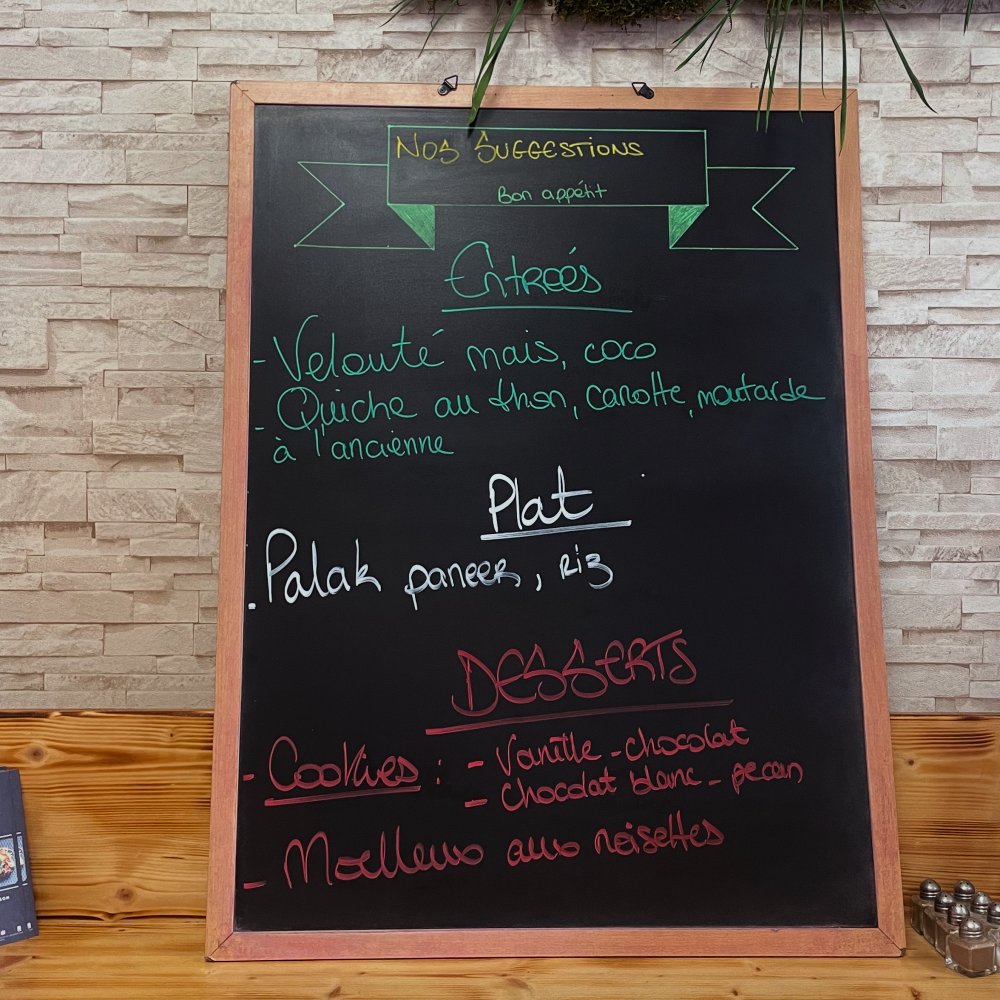 Nos Suggestions
Bon appétit
Entreés
- Velouté mais, coco
- Quiche au thon, carotte, moutarde
à l'ancienne
Plat
. Palak paneer, riz
DESSERTS
- Cookies : - Vanille - chocolat
- chocolat blanc - pecan
- Moelleux aux noisettes